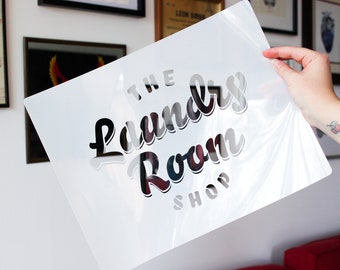 THE
Laundry
Room
SHOP